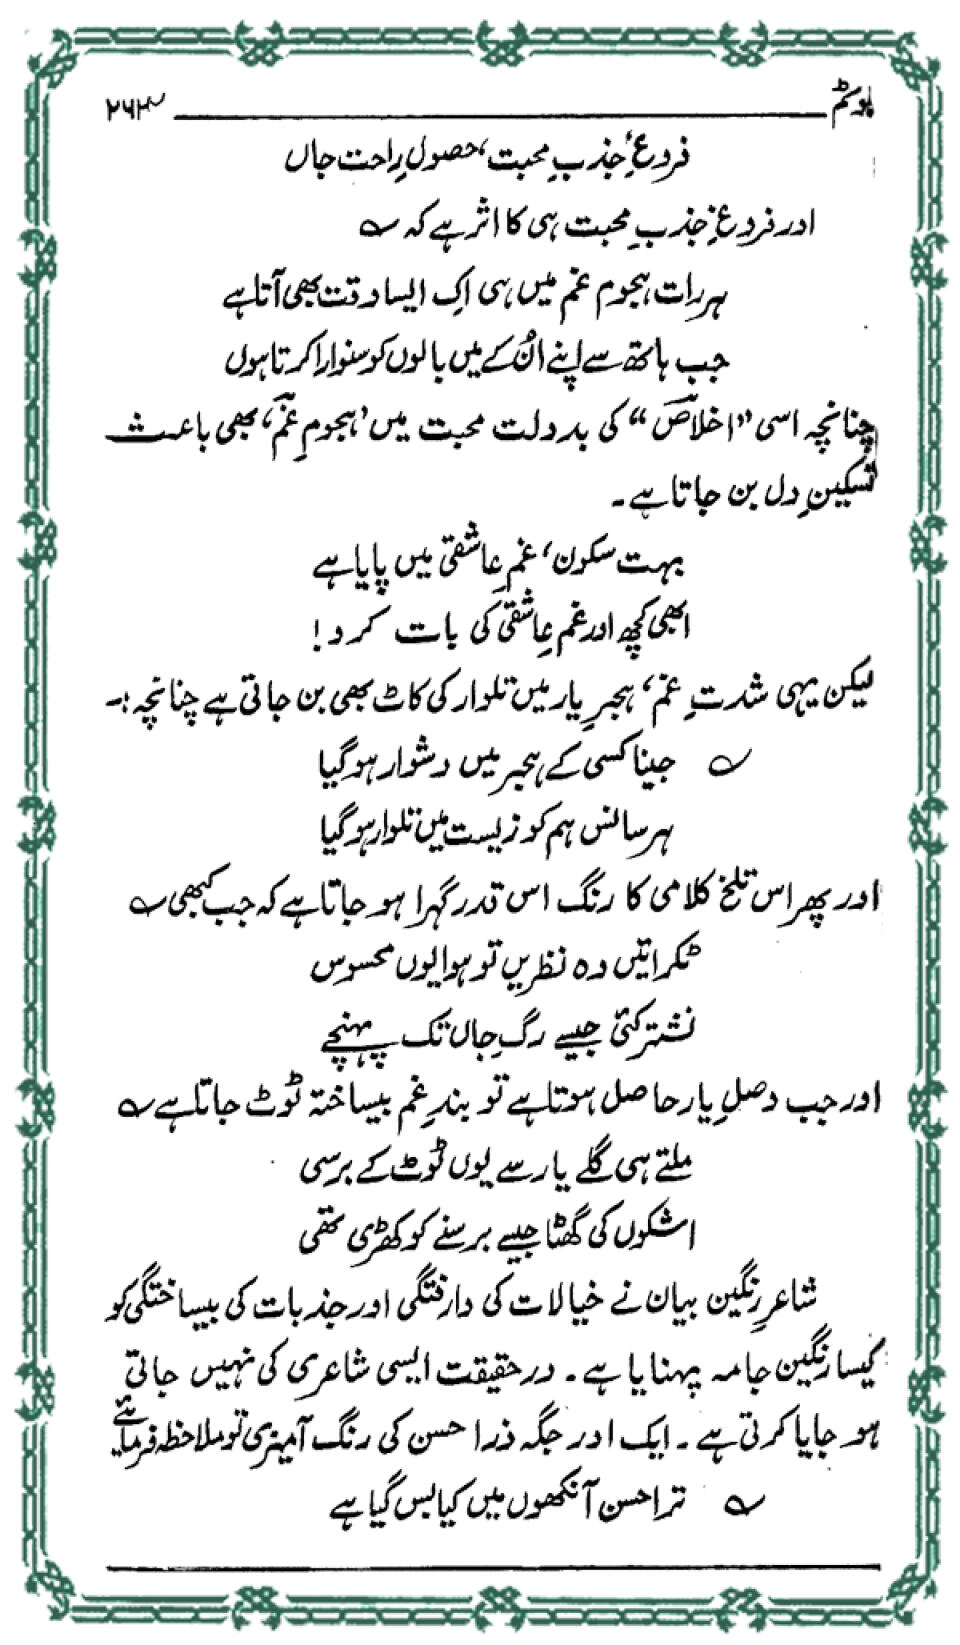 بوکٹم ۲۶۳
فروغِ جذبِ محبت، حصولِ راحت جاں
اور فروغِ جذبِ محبت ہی کا اثر ہے کہ ؎
ہر رات ہجوم غم میں ہی اِک ایسا وقت بھی آتا ہے
جب ہاتھ سے اپنے اُن کے میں بالوں کو سنوارا کرتا ہوں
چنانچہ اسی ”اخلاص“ کی بدولت محبت میں ’ہجومِ غم‘ بھی باعث
تسکینِ دل بن جاتا ہے۔
بہت سکون، غمِ عاشقی میں پایا ہے
ابھی کچھ اور غمِ عاشقی کی بات کرو!
لیکن یہی شدتِ غم، ہجرِ یار میں تلوار کی کاٹ بھی بن جاتی ہے چنانچہ:۔
؎ جینا کسی کے ہجر میں دشوار ہوگیا
ہر سانس ہم کو زیست میں تلوار ہوگیا
اور پھر اس تلخ کلامی کا رنگ اس قدر گہرا ہو جاتا ہے کہ جب کبھی ؎
ٹکرائیں وہ نظریں تو ہوا یوں محسوس
نشتر کئی جیسے رگِ جاں تک پہنچے
اور جب وصلِ یار حاصل ہوتا ہے تو بندِ غم بیساختہ ٹوٹ جاتا ہے ؎
ملتے ہی گلے یار سے یوں ٹوٹ کے برسی
اشکوں کی گھٹا جیسے برسنے کو کھڑی تھی
شاعرِ رنگین بیان نے خیالات کی وارفتگی اور جذبات کی بیساختگی کو
کیسا رنگین جامہ پہنایا ہے۔ درحقیقت ایسی شاعری کی نہیں جاتی
ہو جایا کرتی ہے۔ ایک اور جگہ ذرا حسن کی رنگ آمیزی تو ملاحظہ فرمائیے
؎ ترا حسن آنکھوں میں کیا بس گیا ہے